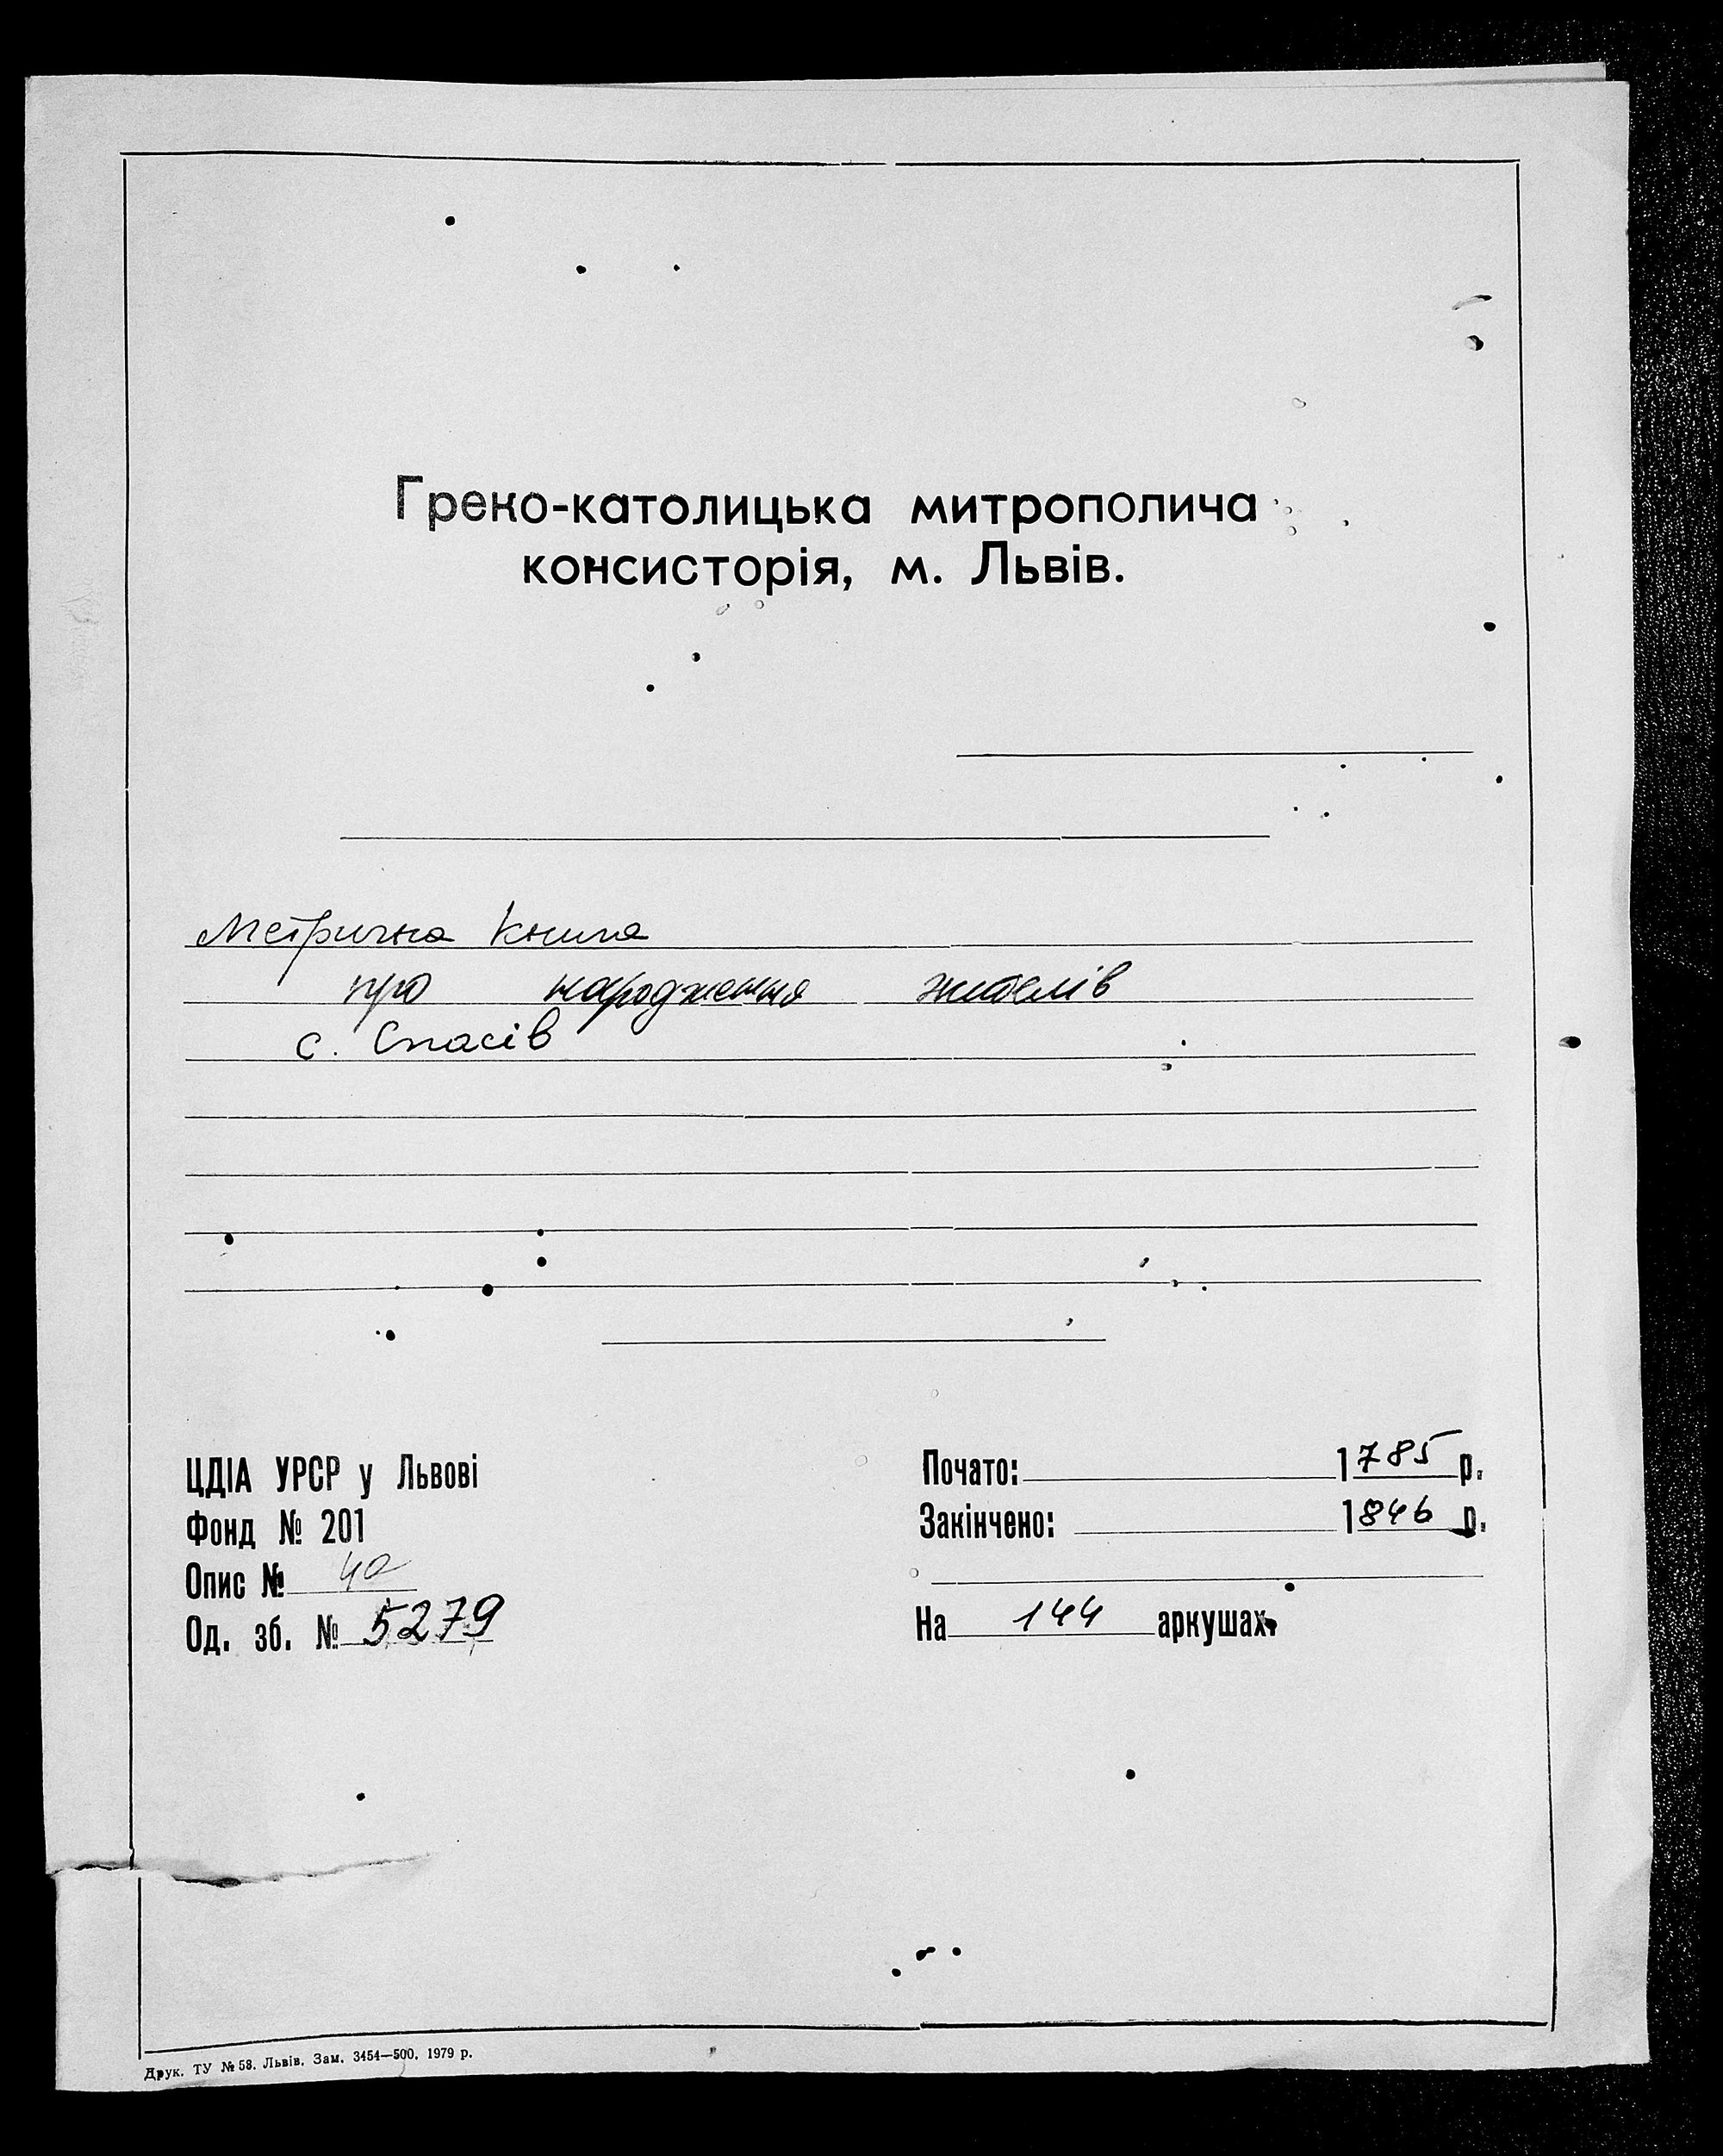 Греко-католицька митрополича
консисторія, м. Львів.
Метрична книга
про народження жителів
с. Спасів
ЦДІА УРСР у Львові
Фонд № 201
Опис № 4а
Од. зб. № 5279
Почато: 1785 р.
Закінчено: 1846 р.
На 144 аркушах.
Друк. ТУ № 58. Львів. Зам. 3454—500. 1979 р.